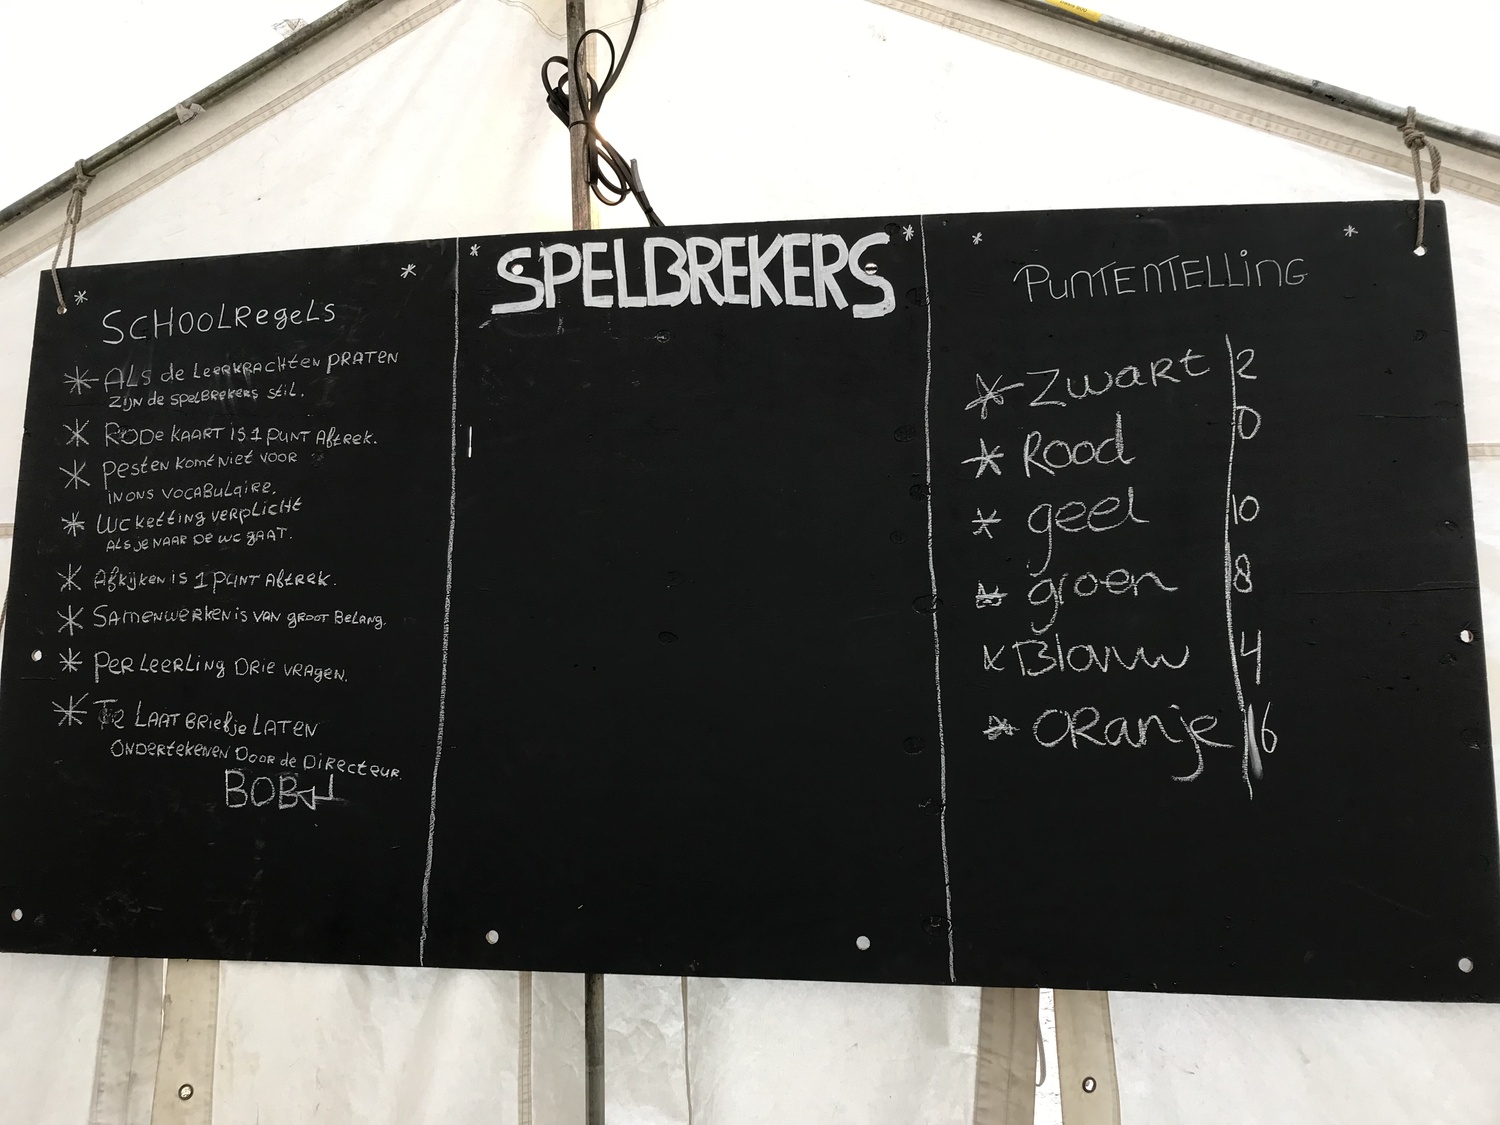 SCHOOLREGELS
ALS de LEERKRACHTEN PRATEN
ZIJN de SPELBREKERS STIL.
RODE KAART IS 1 PUNT AFTREK.
PESTEN KOMT NIET VOOR
IN ONS VOCABULAIRE.
WC KETTING VERPLICHT
ALS JE NAAR DE WC GAAT.
AFKIJKEN IS 1 PUNT AFTREK.
SAMENWERKEN IS VAN GROOT BELANG.
PER LEERLING DRIE VRAGEN.
Te LAAT BRIEFJE LATEN
ONDERTEKENEN DOOR de DIRECTEUR.
BOB
SPELBREKERS
PUNTENTELLING
ZWART 2
ROOD 0
geel 10
groen 8
Blauw 4
ORANJE 16